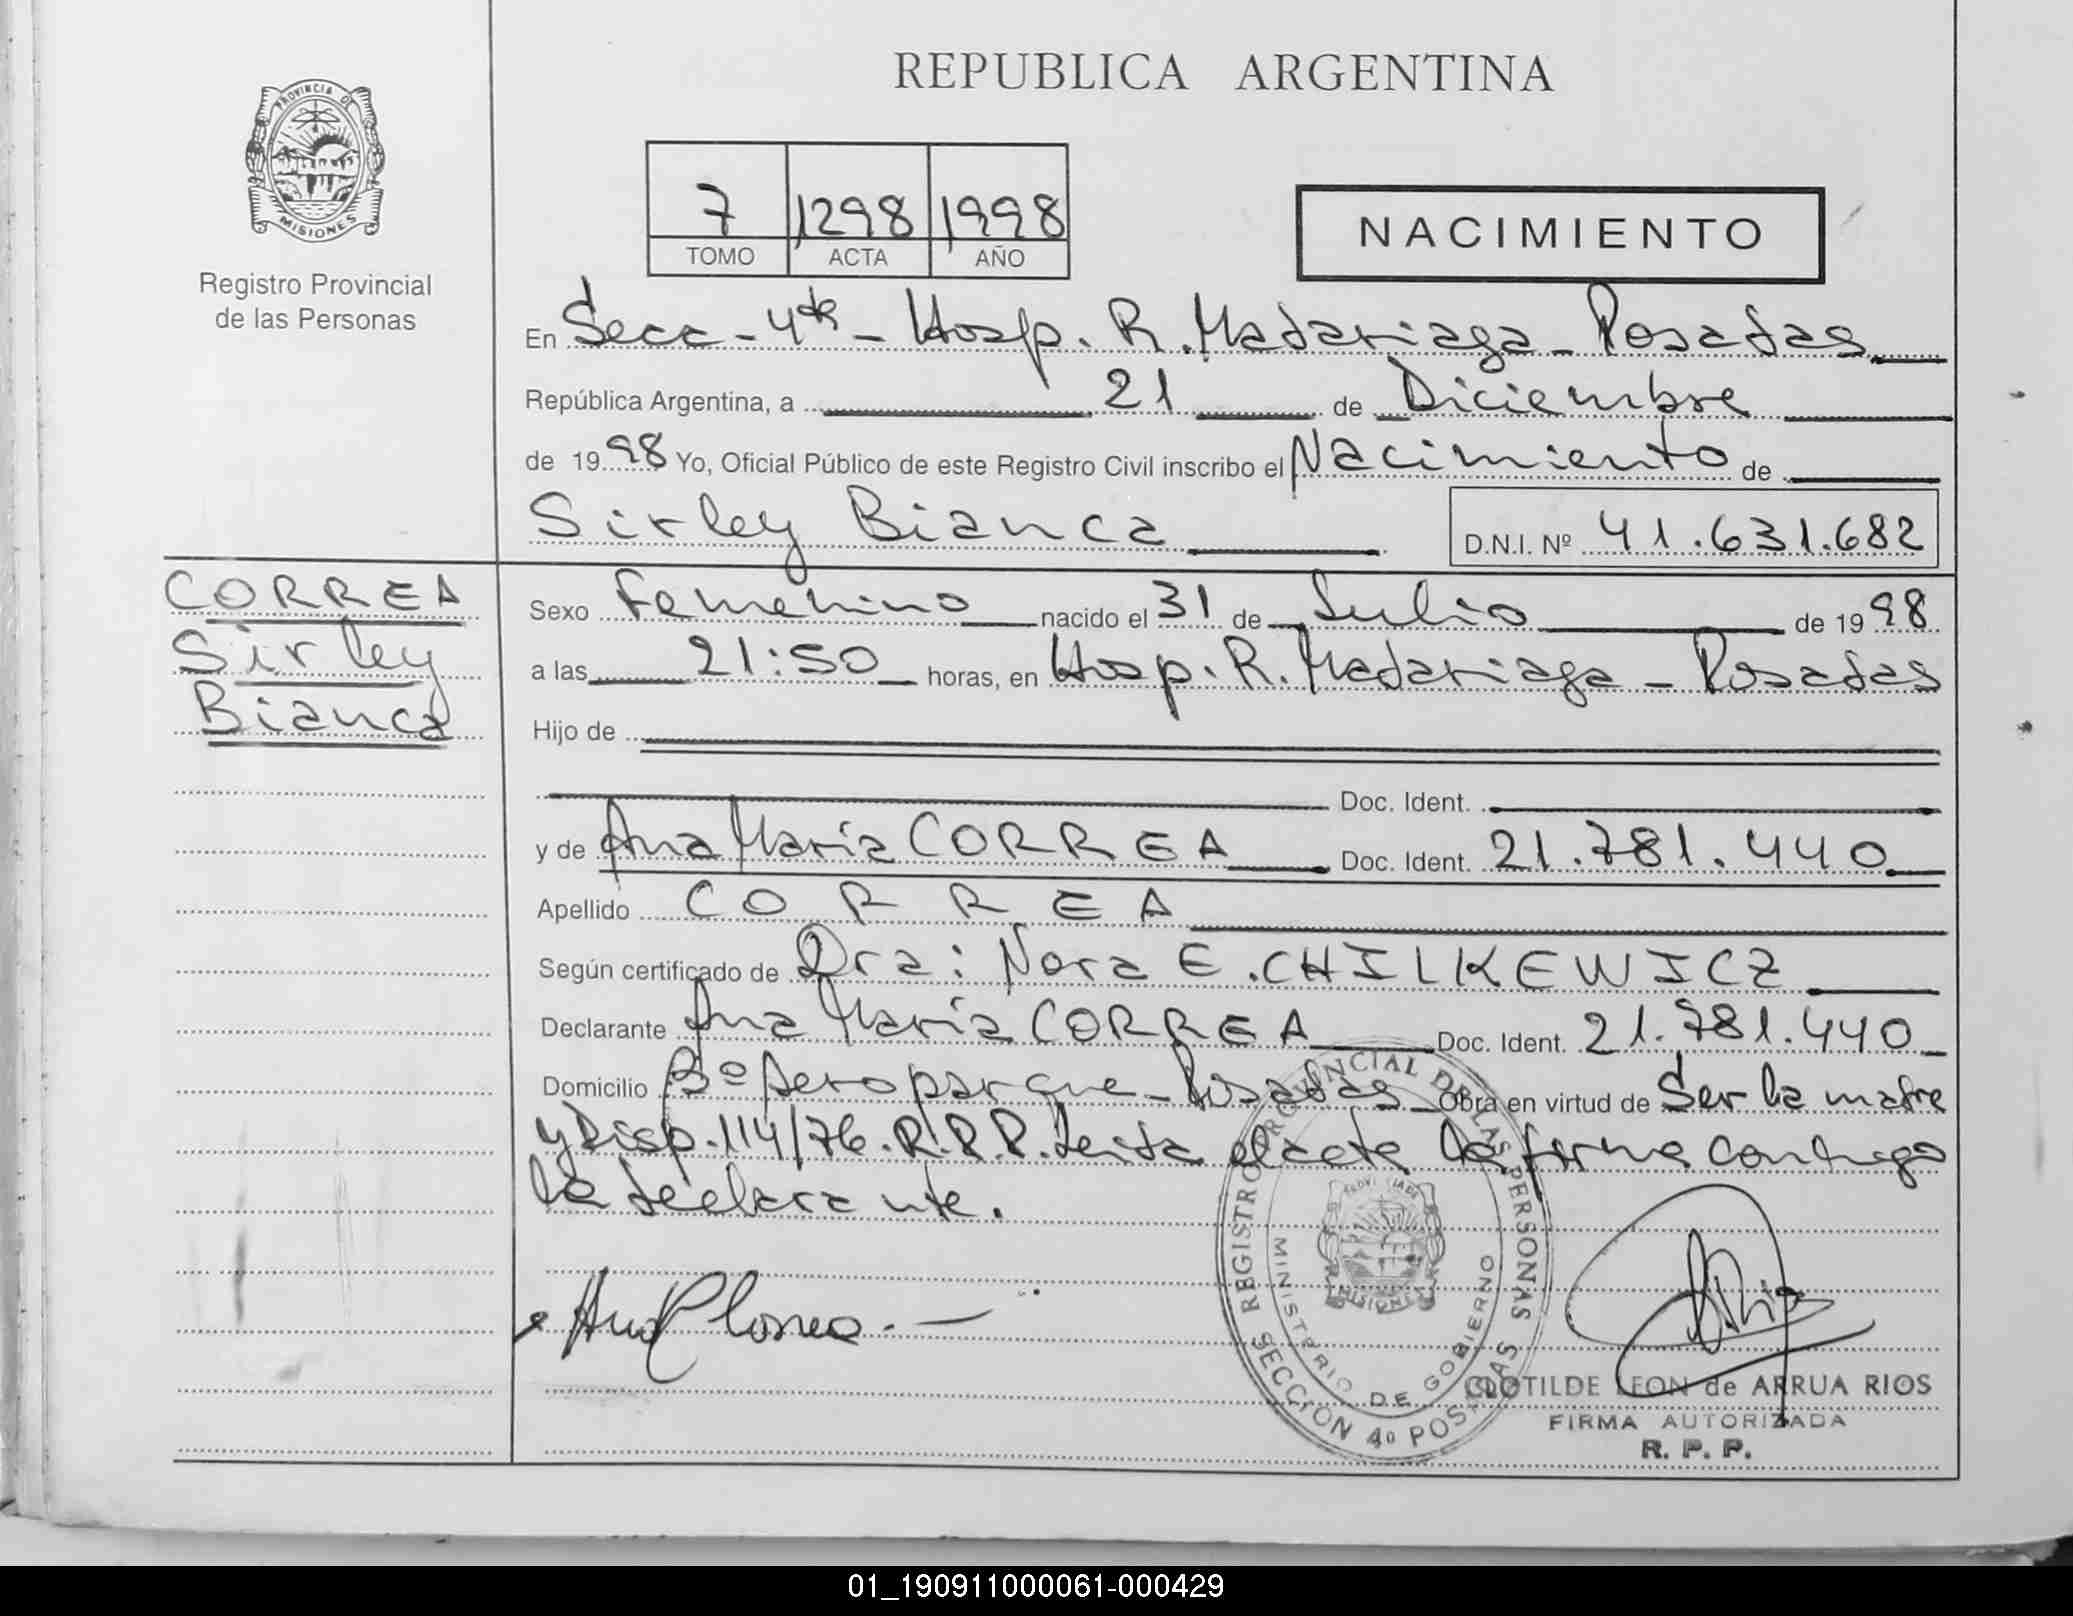 REPUBLICA ARGENTINA
PROVINCIA DE
MISIONES
Registro Provincial
de las Personas
7 1298 1998
TOMO ACTA AÑO
NACIMIENTO
En Secc - 4ta - Hosp. R. Madariaga - Posadas
República Argentina, a 21 de Diciembre
de 1998 Yo, Oficial Público de este Registro Civil inscribo el Nacimiento de
Sirley Bianca D.N.I. Nº 41.631.682
CORREA
Sirley
Bianca
Sexo Femenino nacido el 31 de Julio de 1998
a las 21:50 horas, en Hosp. R. Madariaga - Posadas
Hijo de
Doc. Ident.
y de Ana María CORREA Doc. Ident. 21.781.440
Apellido CORREA
Según certificado de Dra: Nora E. CHILKEWICZ
Declarante Ana María CORREA Doc. Ident. 21.781.440
Domicilio Bº Aeroparque - Posadas Obra en virtud de Ser la madre
y Disp. 114/76. R.P.P. Leída el acta la firma conmigo
la declarante.
REGISTRO PROVINCIAL DE LAS PERSONAS
MINISTERIO DE GOBIERNO
MISIONES
SECCIÓN 4º POSADAS
CLOTILDE LEON de ARRUA RIOS
FIRMA AUTORIZADA
R. P. P.
01_190911000061-000429